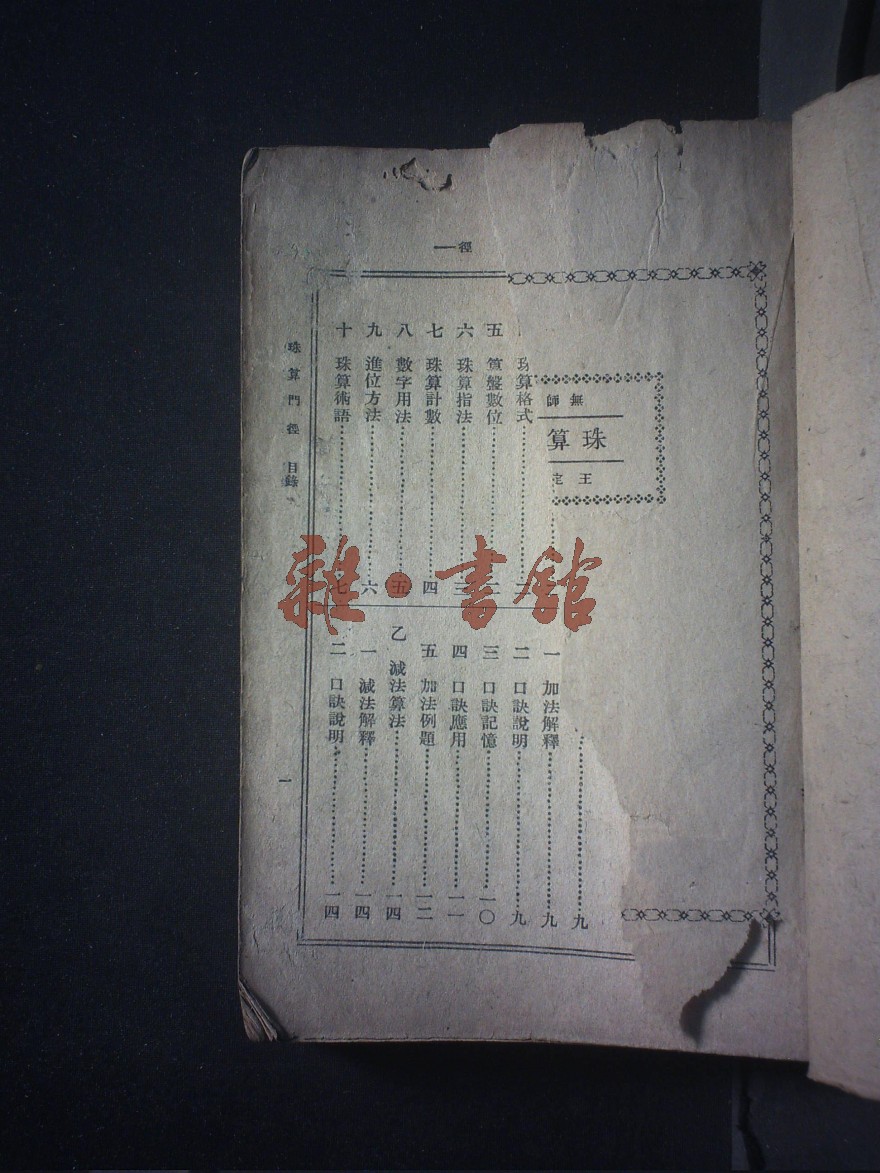 徑一
無師
珠算
王定
珠算格式
五 算盤數位 二
六 珠算指法 三
七 珠算計數 四
八 數字用法 五
九 進位方法 六
十 珠算術語 七
九
一 加法解釋 九
二 口訣說明 九
三 口訣記憶 一〇
四 口訣應用 一一
五 加法例題 一二
乙 減法算法 一四
一 減法解釋 一四
二 口訣說明 一四
珠算門徑 目錄
一
雜·書館